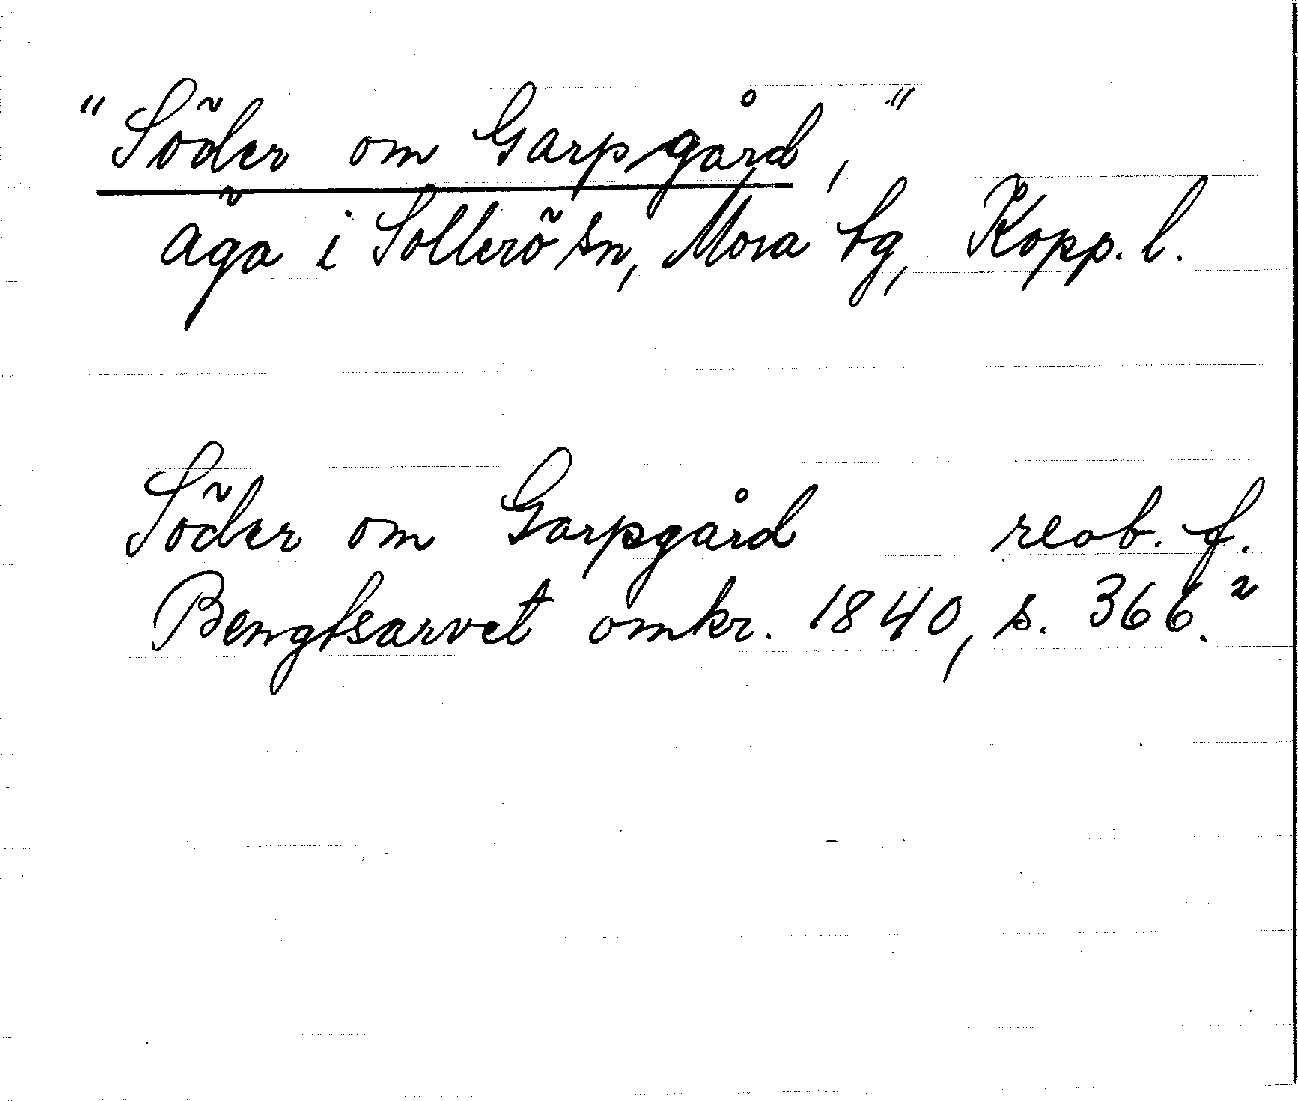 "Söder om Garpgård,"
äga i Sollerö sn, Mora tg, Kopp. l.
Söder om Garpgård reob. f.
Bengtsarvet omkr. 1840, s. 366.²